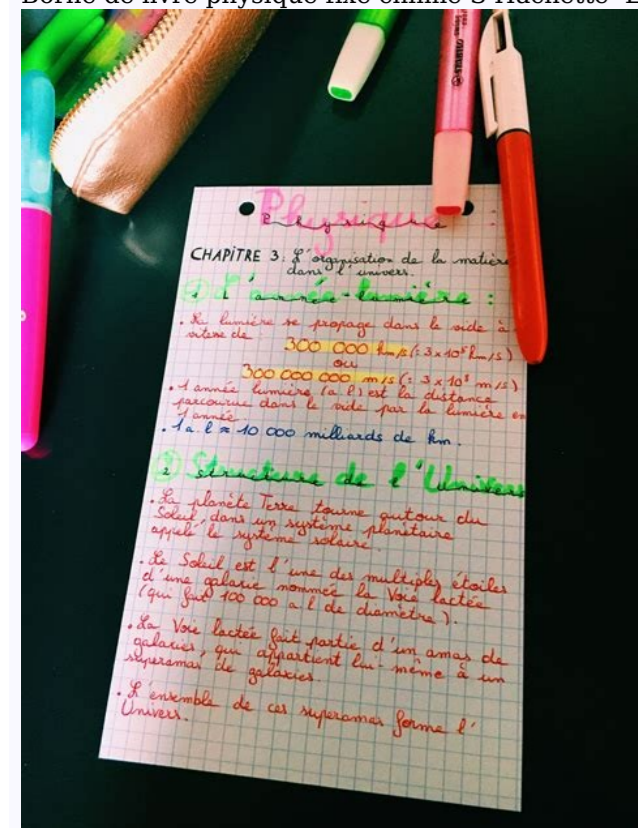 Borne de livre physique fixe chimie S Hachette
STABILO
Physique :
Physique
CHAPITRE 3 : L'organisation de la matière
dans l'univers.
1 L'année-lumière :
. La lumière se propage dans le vide à
vitesse de :
300 000 km/s (= 3 x 10⁵ km/s)
ou
300 000 000 m/s (= 3 x 10⁸ m/s)
. 1 année lumière (a.l) est la distance
parcourue dans le vide par la lumière en
1 année.
. 1 a.l ≈ 10 000 milliards de km.
2 Structure de l'Univers
. La planète Terre tourne autour du
Soleil, dans un système planétaire
appelé le système solaire.
. Le Soleil, est l'une des multiples étoiles
d'une galaxie nommée la Voie lactée
(qui fait 100 000 a l de diamètre).
. La Voie lactée fait partie d'un amas de
galaxies, qui appartient lui-même à un
superamas de galaxies.
. L'ensemble de ces superamas forme l'
Univers.